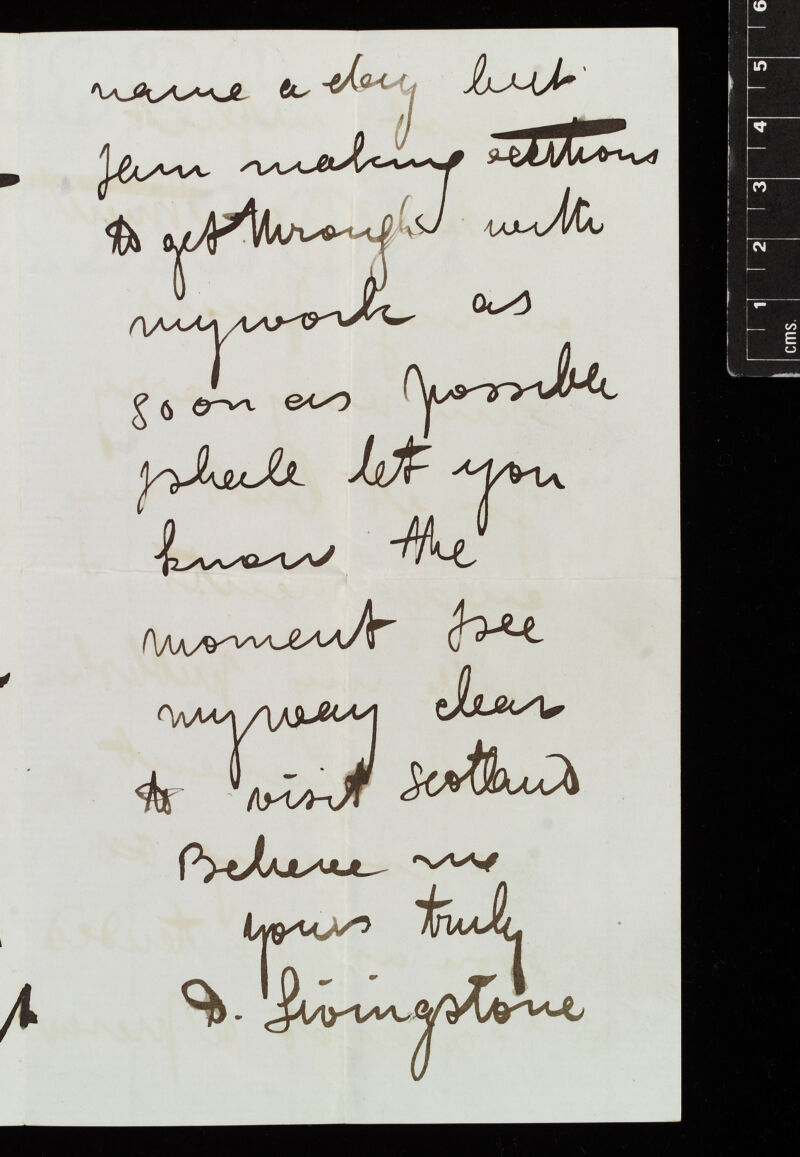 name a day but
I am making exertions
to get through with
my work as
soon as possible
I shall let you
know the
moment I see
my way clear
to visit Scotland
Believe me
yours truly
D. Livingstone
6
5
4
3
2
1
cms.